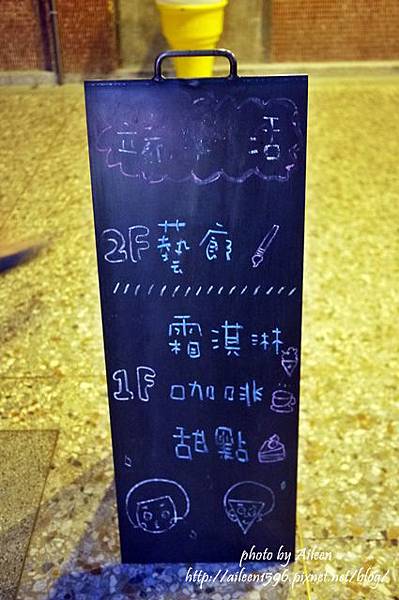 2F 藝廊
霜淇淋
1F 咖啡
甜點
photo by Aileen
http://aileen1596.pixnet.net/blog/